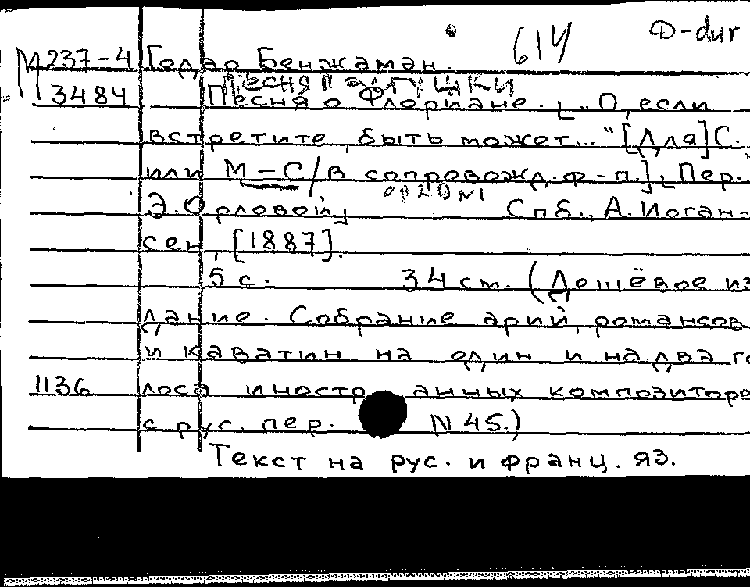 614 D-dur
М237-4 Годар Бенжаман.
Песня пастушки
3484 Песня о Флориане. „О, если
встретите, быть может..." [Для] С.
или М-С/в сопровожд. ф-п.]. Пер.
Э. Орловой, Спб., А. Иоган-
сен, [1887].
5 с. 34 см. (Дешёвое из
дание. Собрание арий, романсов
и каватин на один и на два го
1136 лоса иностранных композиторов
с рус. пер. N 45.)
Текст на рус. и франц. яз.